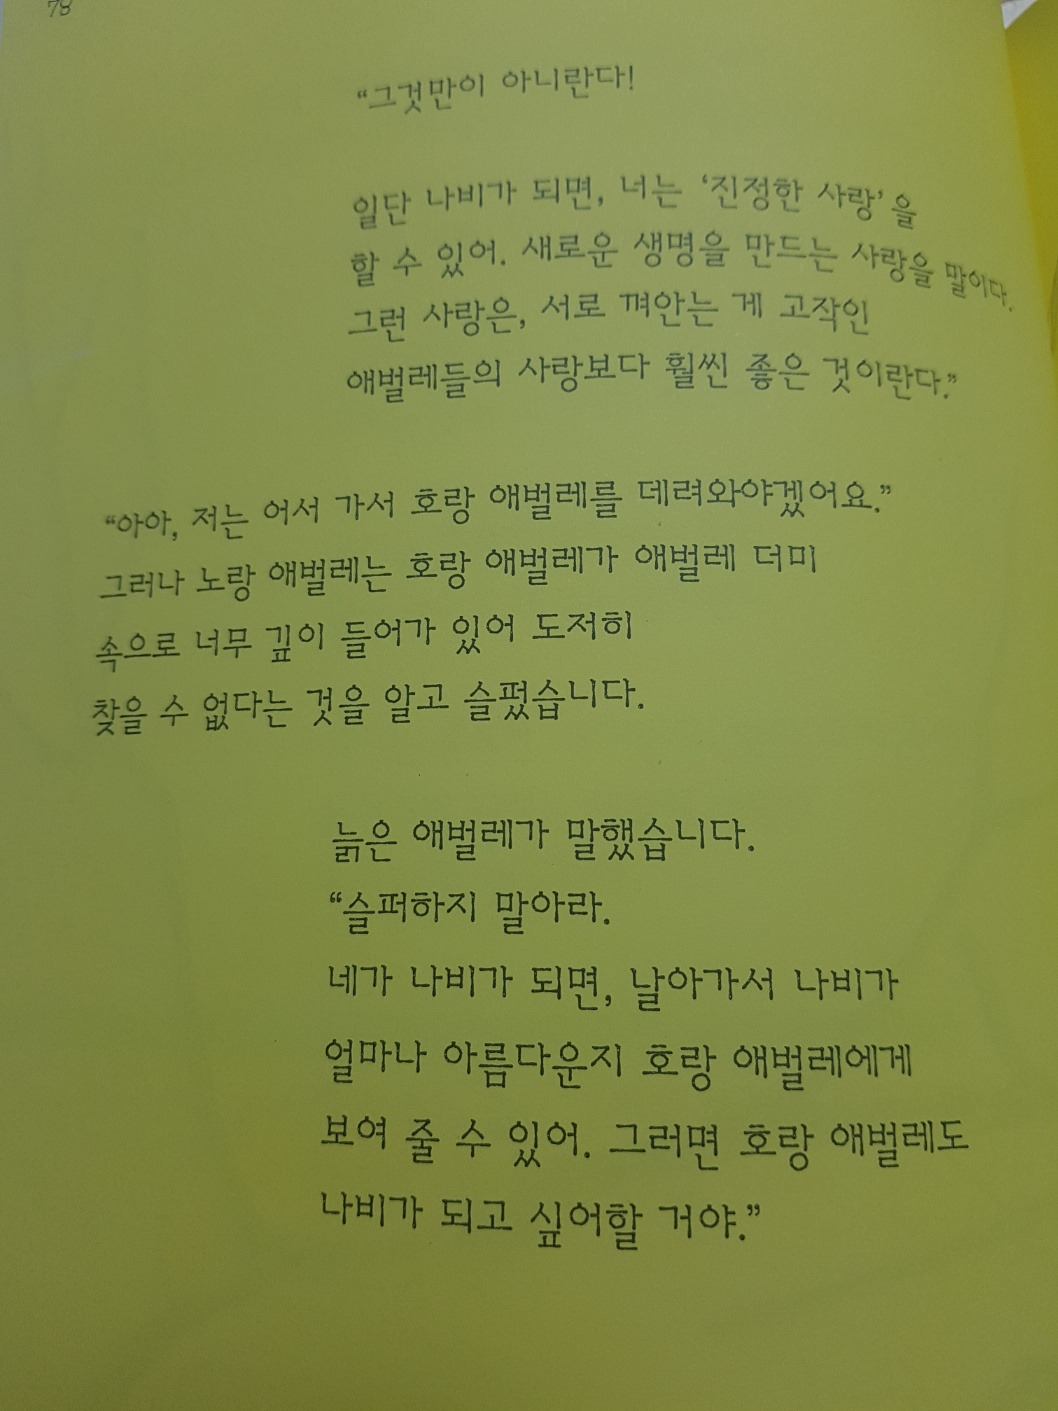 78
“그것만이 아니란다!
일단 나비가 되면, 너는 ‘진정한 사랑’을
할 수 있어. 새로운 생명을 만드는 사랑을 말이다.
그런 사랑은, 서로 껴안는 게 고작인
애벌레들의 사랑보다 훨씬 좋은 것이란다.”
“아아, 저는 어서 가서 호랑 애벌레를 데려와야겠어요.”
그러나 노랑 애벌레는 호랑 애벌레가 애벌레 더미
속으로 너무 깊이 들어가 있어 도저히
찾을 수 없다는 것을 알고 슬펐습니다.
늙은 애벌레가 말했습니다.
“슬퍼하지 말아라.
네가 나비가 되면, 날아가서 나비가
얼마나 아름다운지 호랑 애벌레에게
보여 줄 수 있어. 그러면 호랑 애벌레도
나비가 되고 싶어할 거야.”